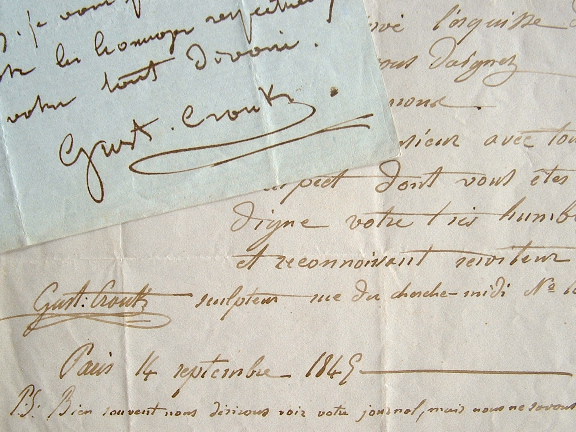 : je vous
les hommages respectueux
votre tout dévoué.
Gust. Crouk
l'esquisse
daignez
nous
avec tou
respect dont vous êtes
digne votre très humb
et reconnoissant serviteur
Gust. Crouk sculpteur rue du cherche-midi No
Paris 14 septembre 1845
P.S: Bien souvent nous désirons voir votre journal, mais nous ne savons